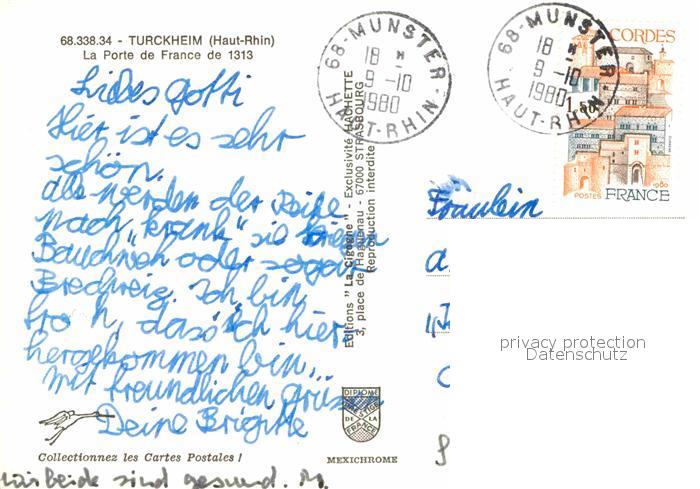 68.338.34 - TURCKHEIM (Haut-Rhin)
La Porte de France de 1313
Liebes Gotti
Hier ist es sehr
schön.
alle werden der Reihe
nach krank" sie kriegen
Bauchweh oder sogar
Brechreiz. Ich bin
fro h, dass ich hier
hergekommen bin.
Mit freundlichen Grüssen
Deine Brigitte
Collectionnez les Cartes Postales !
wir beide sind gesund. M.
Editions " La Cigogne " - Exclusivité HACHETTE
3, place de Haguenau - 67000 STRASBOURG
Reproduction interdite
DIPLOME
PRESTIGE
DE LA
FRANCE
MEXICHROME
68-MUNSTER
18 H
9-10
1980
HAUT-RHIN
68-MUNSTER
18 H
9-10
1980
HAUT-RHIN
CORDES
1,50
1980
POSTES FRANCE
Fräulein
privacy protection
Datenschutz